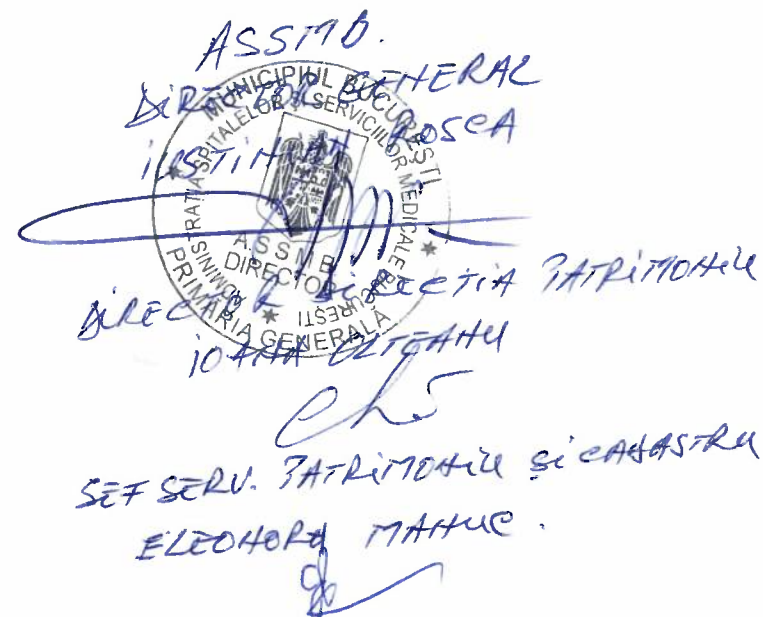 ASSMB.
DIRECTOR GENERAL
IUSTINIAN ROSCA
MUNICIPIUL BUCUREȘTI
ADMINISTRAȚIA SPITALELOR ȘI SERVICIILOR MEDICALE BUCUREȘTI
A.S.S.M.B.
DIRECTOR
PRIMĂRIA GENERALĂ
DIRECTOR DIRECTIA PATRIMONIU
IOANA OLTEANU
SEF SERV. PATRIMONIU SI CADASTRU
ELEONORA MANUC.